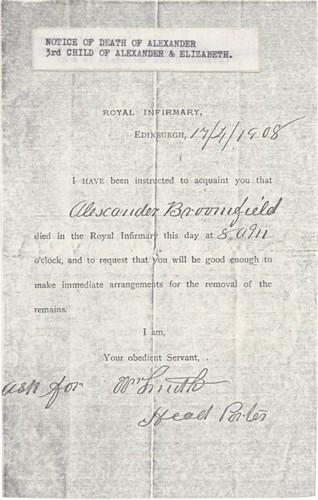 NOTICE OF DEATH OF ALEXANDER
3rd CHILD OF ALEXANDER & ELIZABETH.
ROYAL INFIRMARY,
EDINBURGH, 17/4/1908
I HAVE been instructed to acquaint you that
Alexander Broomfield
died in the Royal Infirmary this day at 5
o'clock, and to request that you will be good enough to
make immediate arrangements for the removal of the
remains.
I am,
Your obedient Servant,
ask for Wm Smith
Head Porter